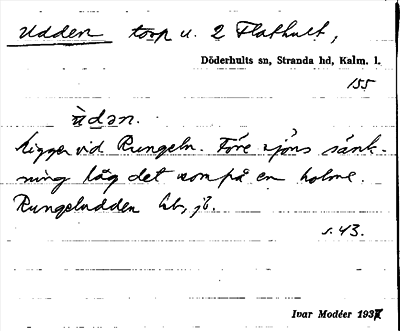 Udden torp u. 2 Flathult,
Döderhults sn, Stranda hd, Kalm. l.
155
ùdən.
Ligger vid Rungeln. Före sjöns sänk-
ning låg det som på en holme.
Rungeludden hb, jb.
s. 43.
Ivar Modéer 1937